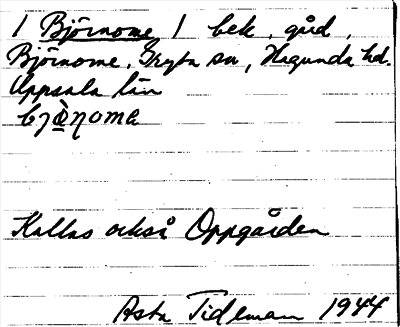 1 Björnome 1 bek. gård,
Björnome, Gryta sn, Hagunda hd.
Uppsala län
Kallas också Oppgården
Asta Tideman 1944